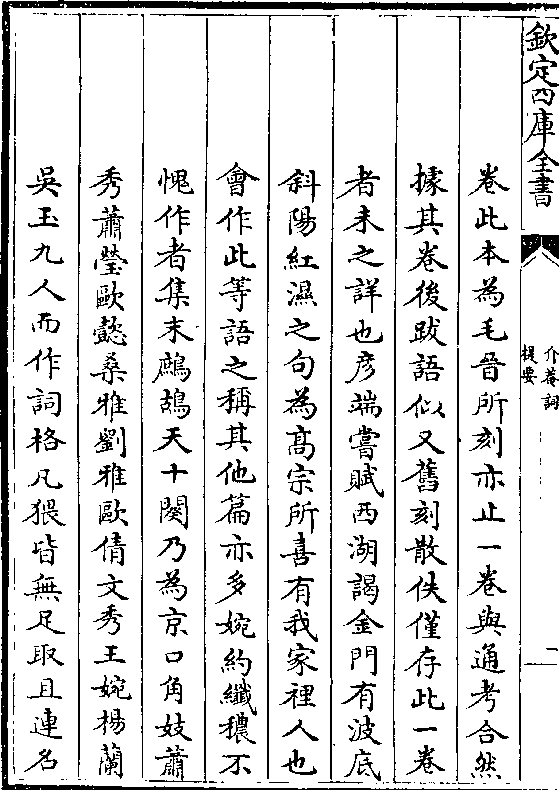 欽定四庫全書
介菴詞
提要
二
卷此本為毛晉所刻亦止一卷與通考合然
據其卷後跋語似又舊刻散佚僅存此一卷
者未之詳也彦端嘗賦西湖謁金門有波底
斜陽紅濕之句為髙宗所喜有我家裡人也
會作此等語之稱其他篇亦多婉約纎穠不
愧作者集末鷓鴣天十闋乃為京口角妓蕭
秀蕭瑩歐懿桑雅劉雅歐倩文秀王婉楊蘭
吳玉九人而作詞格凡猥皆無足取且連名